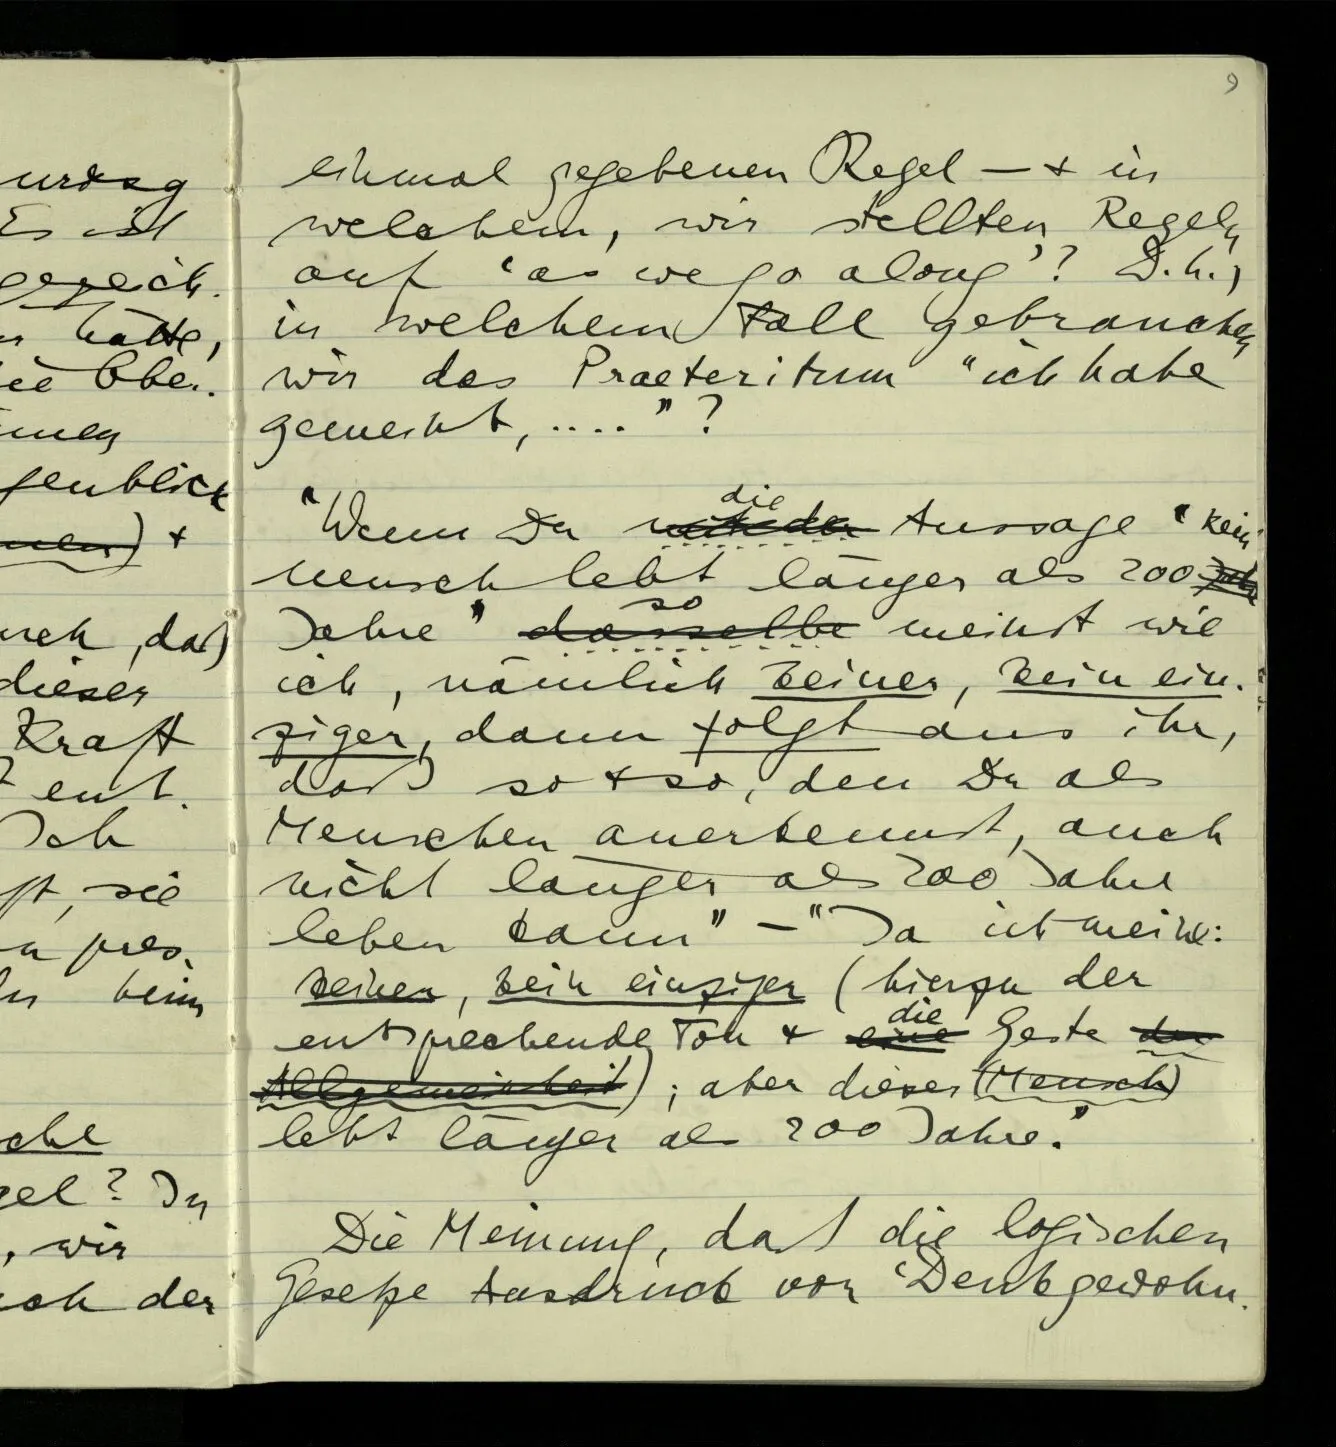 urteg
Es ist
gezeich.
hätte,
die Obe.
genblick
+
daß
dieser
Kraft
ent.
Ich
sie
pres.
beim
sche
gel? In
, wir
nach der
9
einmal gegebenen Regel — + in
welchem, wir stellten Regeln
auf ‘as we go along’? D.h.,
in welchem Fall gebrauchen
wir das Praeteritum “ich habe
gemeint, ....”?
die
“Wenn Du mit der Aussage “kein
Mensch lebt länger als 200 Jah
so
Jahre” dasselbe meinst wie
ich, nämlich keiner, kein ein-
ziger, dann folgt aus ihr,
daß so + so, den Du als
Menschen anerkennst, auch
nicht länger als 200 Jahre
leben kann” – “Ja ich meine:
keiner, kein einziger (hierzu der
die
entsprechende Ton + eine Geste der
Allgemeinheit); aber dieser (Mensch)
lebt länger als 200 Jahre.”
Die Meinung, daß die logischen
Gesetze Ausdruck von ‘Denkgewohn-